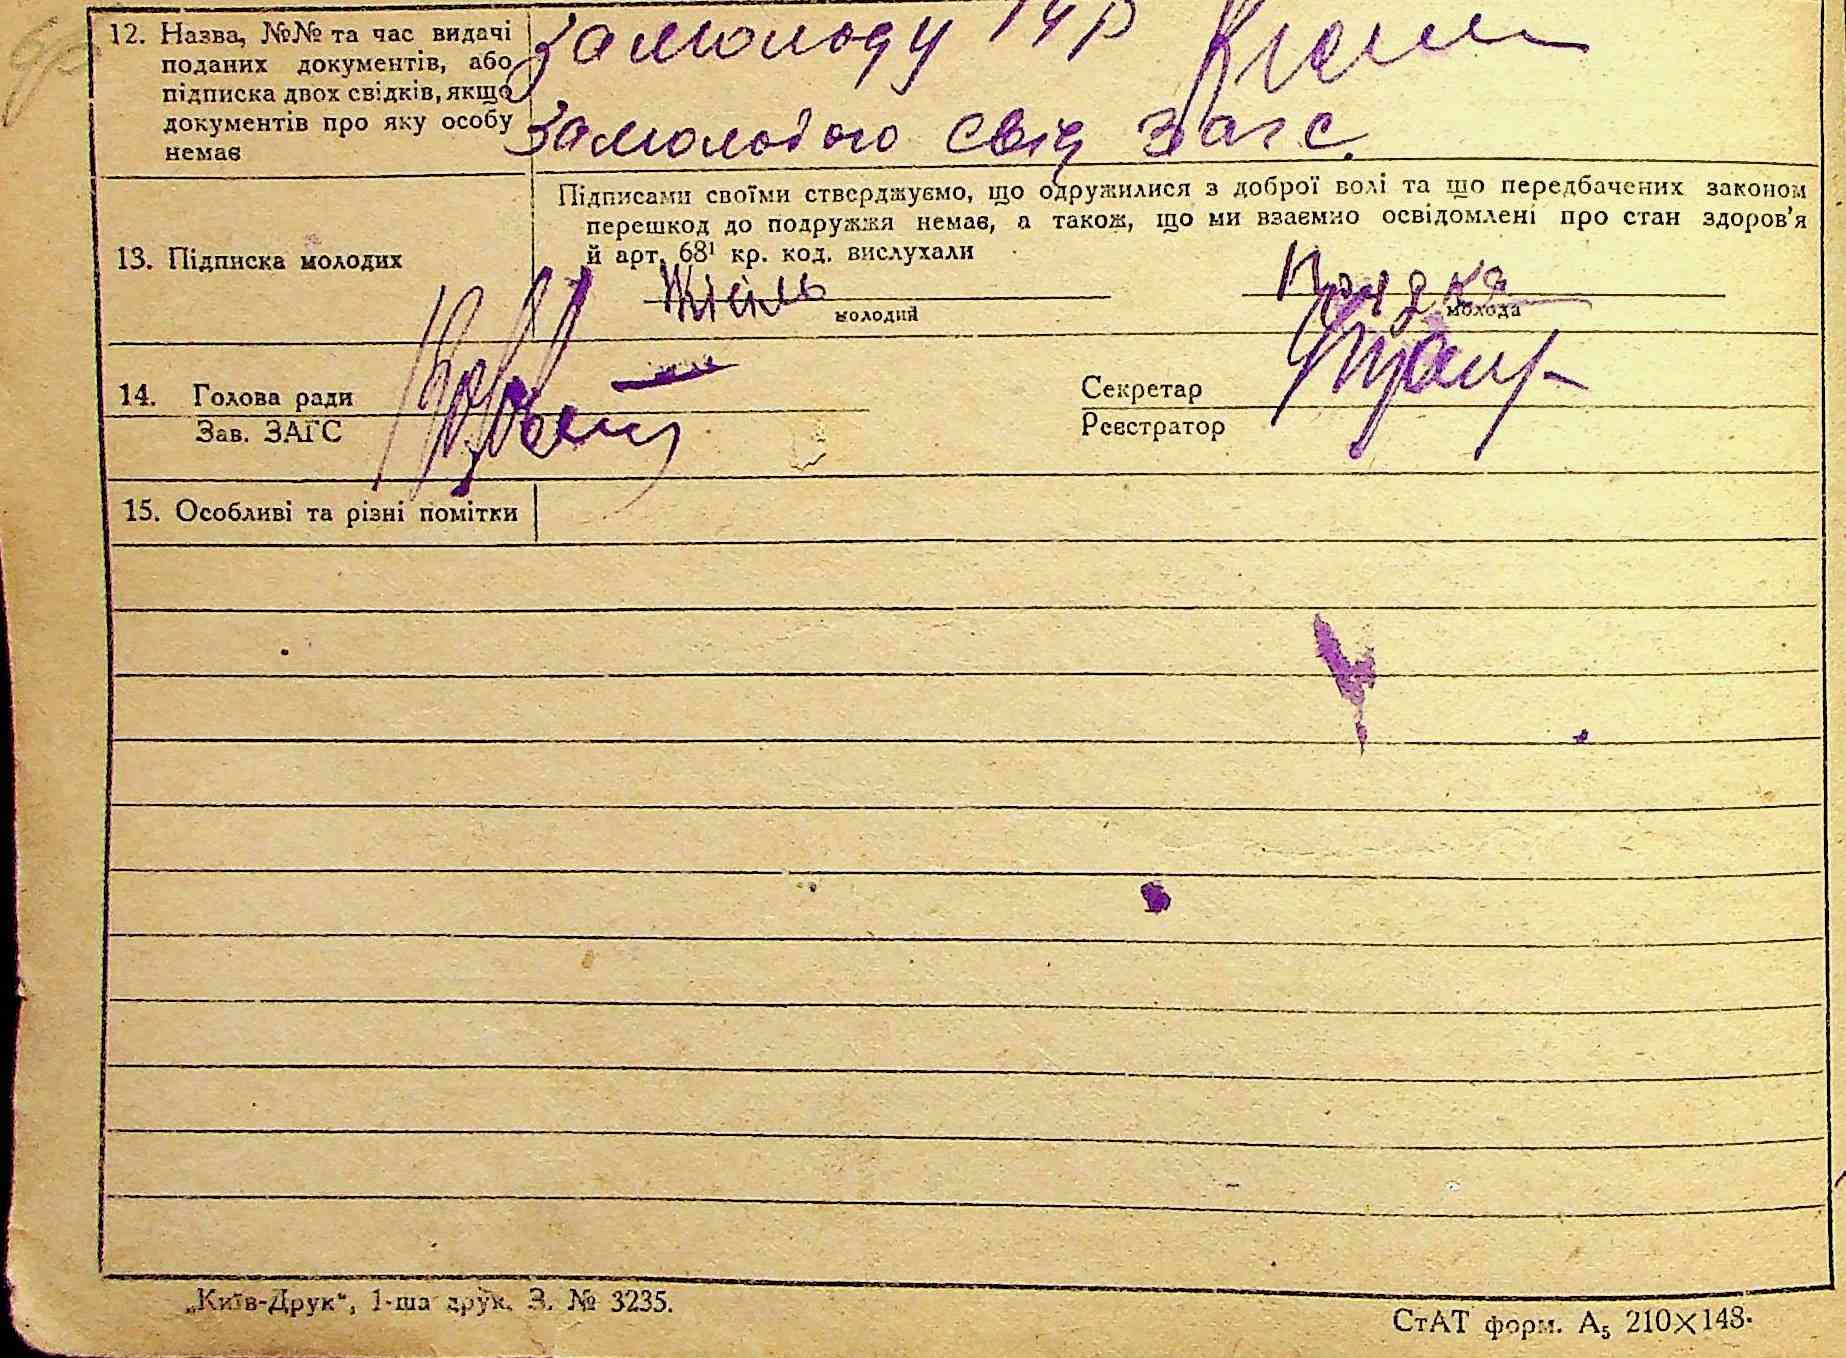 12. Назва, №№ та час видачі
поданих документів, або
підписка двох свідків, якщо
документів про яку особу
немає
За молоду
За молодого свід загс.
13. Підписка молодих
Підписами своїми стверджуємо, що одружилися з доброї волі та що передбачених законом
перешкод до подружжя немає, а також, що ми взаємно освідомлені про стан здоров'я
й арт. 68¹ кр. код. вислухали
молодий
молода
14. Голова ради
Зав. ЗАГС
Секретар
Реєстратор
15. Особливі та різні помітки
„Київ-Друк“, 1-ша друк. З. № 3235.
СтАТ форм. А₅ 210×148.